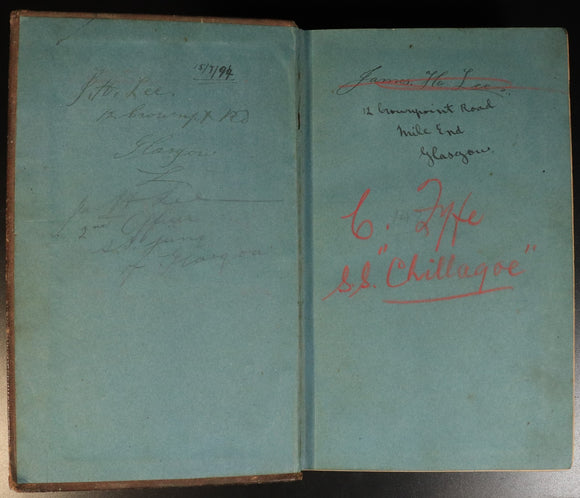 15/7/94
J. H. Lee
12 Crownpt Rd
Glasgow
Jas H Lee
2nd Officer
S.S.
of Glasgow
James H. Lee
12 Crownpoint Road
Mile End
Glasgow
C. Fyfe
S.S. "Chillagoe"